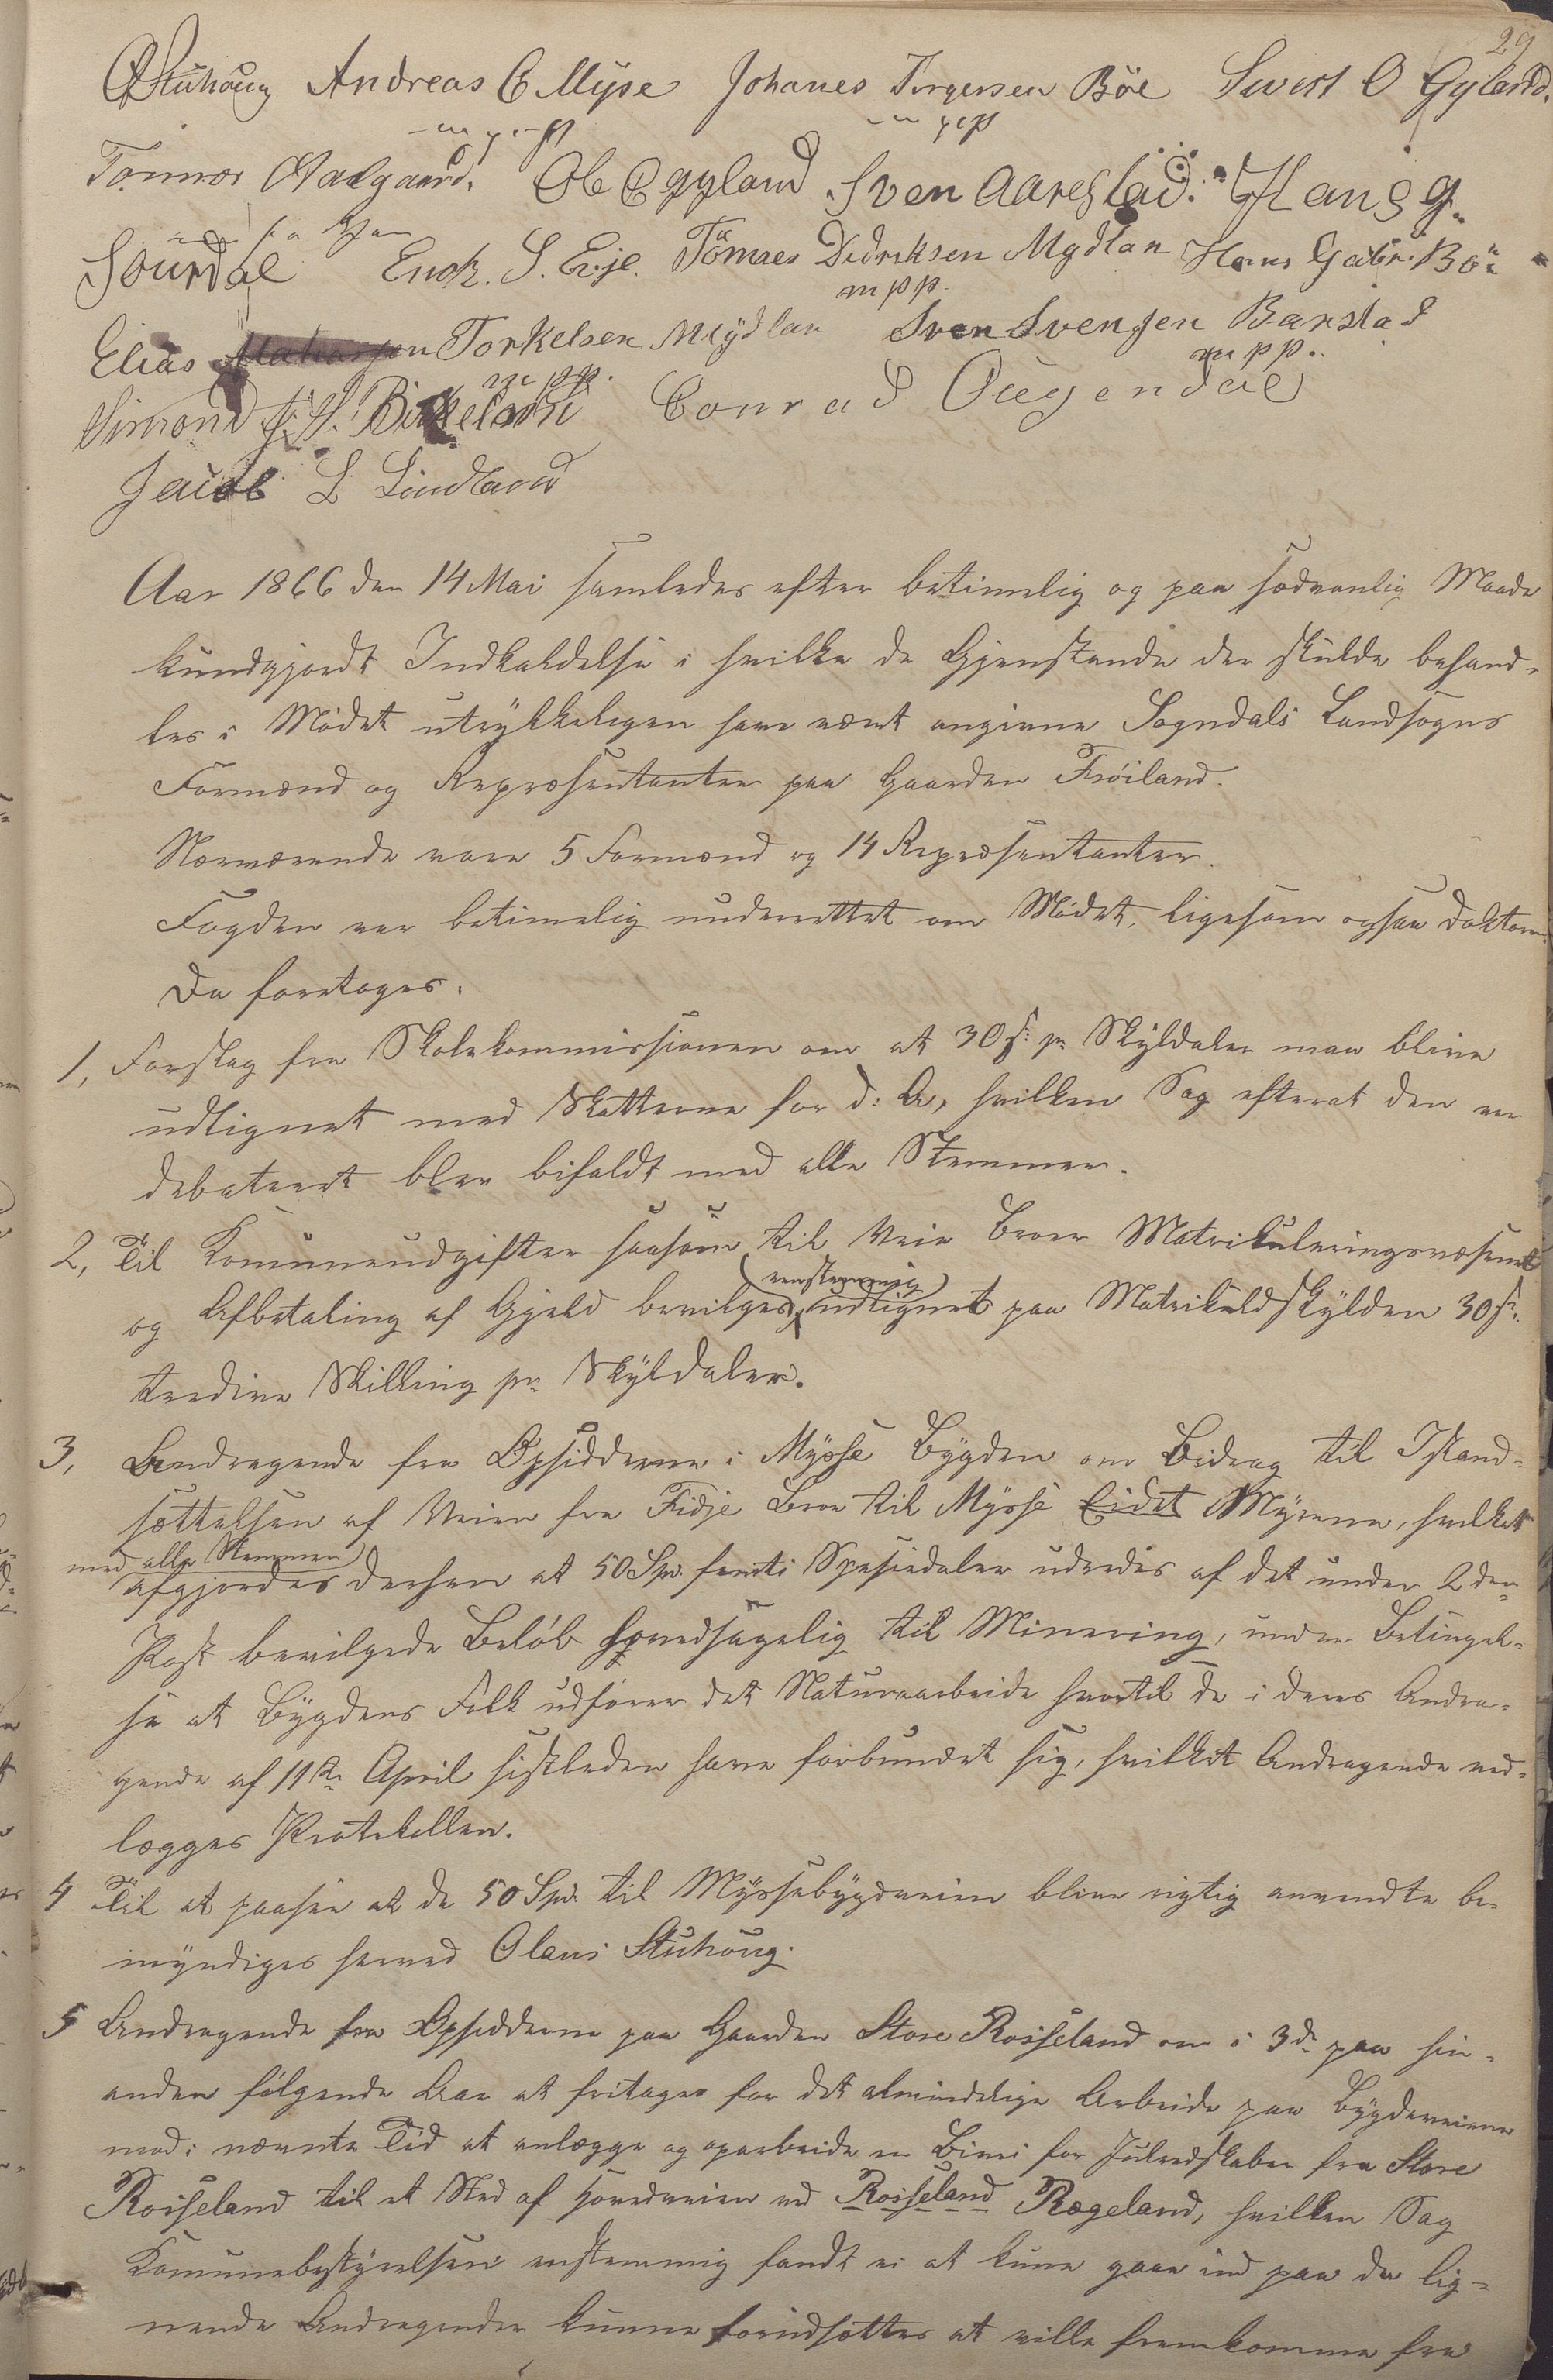 29
O Stuhoug Andreas E Mÿse Johanes Torgersen Böe Sivert O Gyland.
m p p
Tønnes Aalgaard. Ole Eggland Sven Aarestad. Hans g.
Sourdal Enok. S. Eje. Tönnes Didriksen Mydlan Hans Gabr. Böe
m p p.
Elias Torkelsen Mÿdlan Sven Svensen Barstad
m p p. m p p.
Simond Birkeland Conrad Ougendal
Jacob L Lindland
Aar 1866 den 14 Mai samledes efter betimelig og paa sædvanlig Maade
kundgjordt Indkaldelse i hvilke de Gjenstande der skulde behand-
les i Mødet utrykkeligen have vært angivne Sogndals Landsogns
Formænd og Repræsentanter paa Gaarden Frøiland.
Nærværende vare 5 Formænd og 14 Repræsentanter.
Fogden var betimelig underrettet om Mødet, ligesom ogsaa Doktoren.
Da foretoges.
1, Forslag fra Skolekommissionen om at 30 s. pr Skÿldaler maa blive
udlignet med Skatterne for d: A, hvilken Sag efterat den var
debateert blev bifaldt med alle Stemmer.
2, Til Komuneudgifter saasom til Veie Broer Matrikuleringsvæsenet
og Afbetaling af Gjeld bevilges (eenstemmig) udlignet paa Matrikuldskÿlden 30 s.
tredive Skilling pr Skÿldaler.
3, Andragende fra Opsidderne i Mÿsse Bÿgden om Bidrag til Istand-
sættelsen af Veien fra Fidje Broe til Mÿsse Eidet Mÿrene, hvilket
med alle Stemmer
afgjordes derhen at 50 Spd. femti Spesiedaler uderedes af det under 2den
Post bevilgede Beløb hovedsagelig til Minering, under Betingel-
se at Bÿgdens Folk udfører det Naturaarbeide hvortil de i deres Andra-
gende af 11te April sistleden have forbundet sig, hvilket Andragende ved-
lægges Protokollen.
4 Til at paasee at de 50 Spd. til Mÿssebÿgdveien blive rigtig anvendte be-
mÿndiges herved Olaus Stuhoug.
5 Andragende fra Opsidderne paa Gaarden Store Roisseland om i 3de paa hin-
anden følgende Aar at fritages for det almindelige Arbeide paa Bÿgdeveiene
mod i nævnte Tid at anlægge og oparbeide en Bivei for Julredskaber fra Store
Roisseland til et Sted af Hovedveien ved Roisseland Rægeland, hvilken Sag
Komunebestÿrelsen enstemmig fandt ei at kune gaae ind paa da lig-
nende Andragender kunne forudsættes at ville fremkomme fra